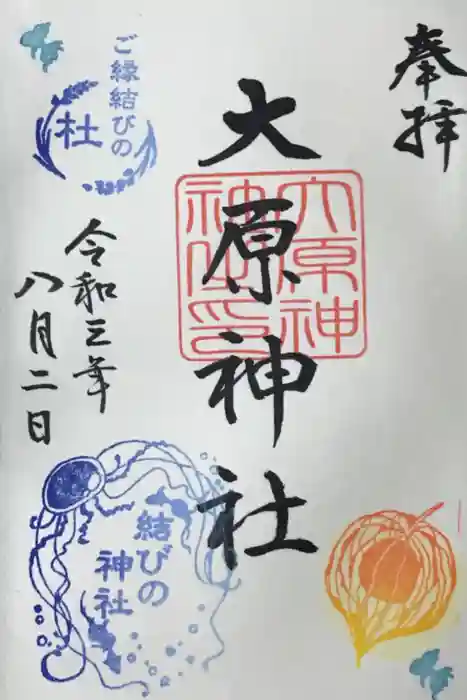 奉拝
大原神社
大原神
社之印
ご縁結びの
杜
令和三年
八月二日
結びの
神社